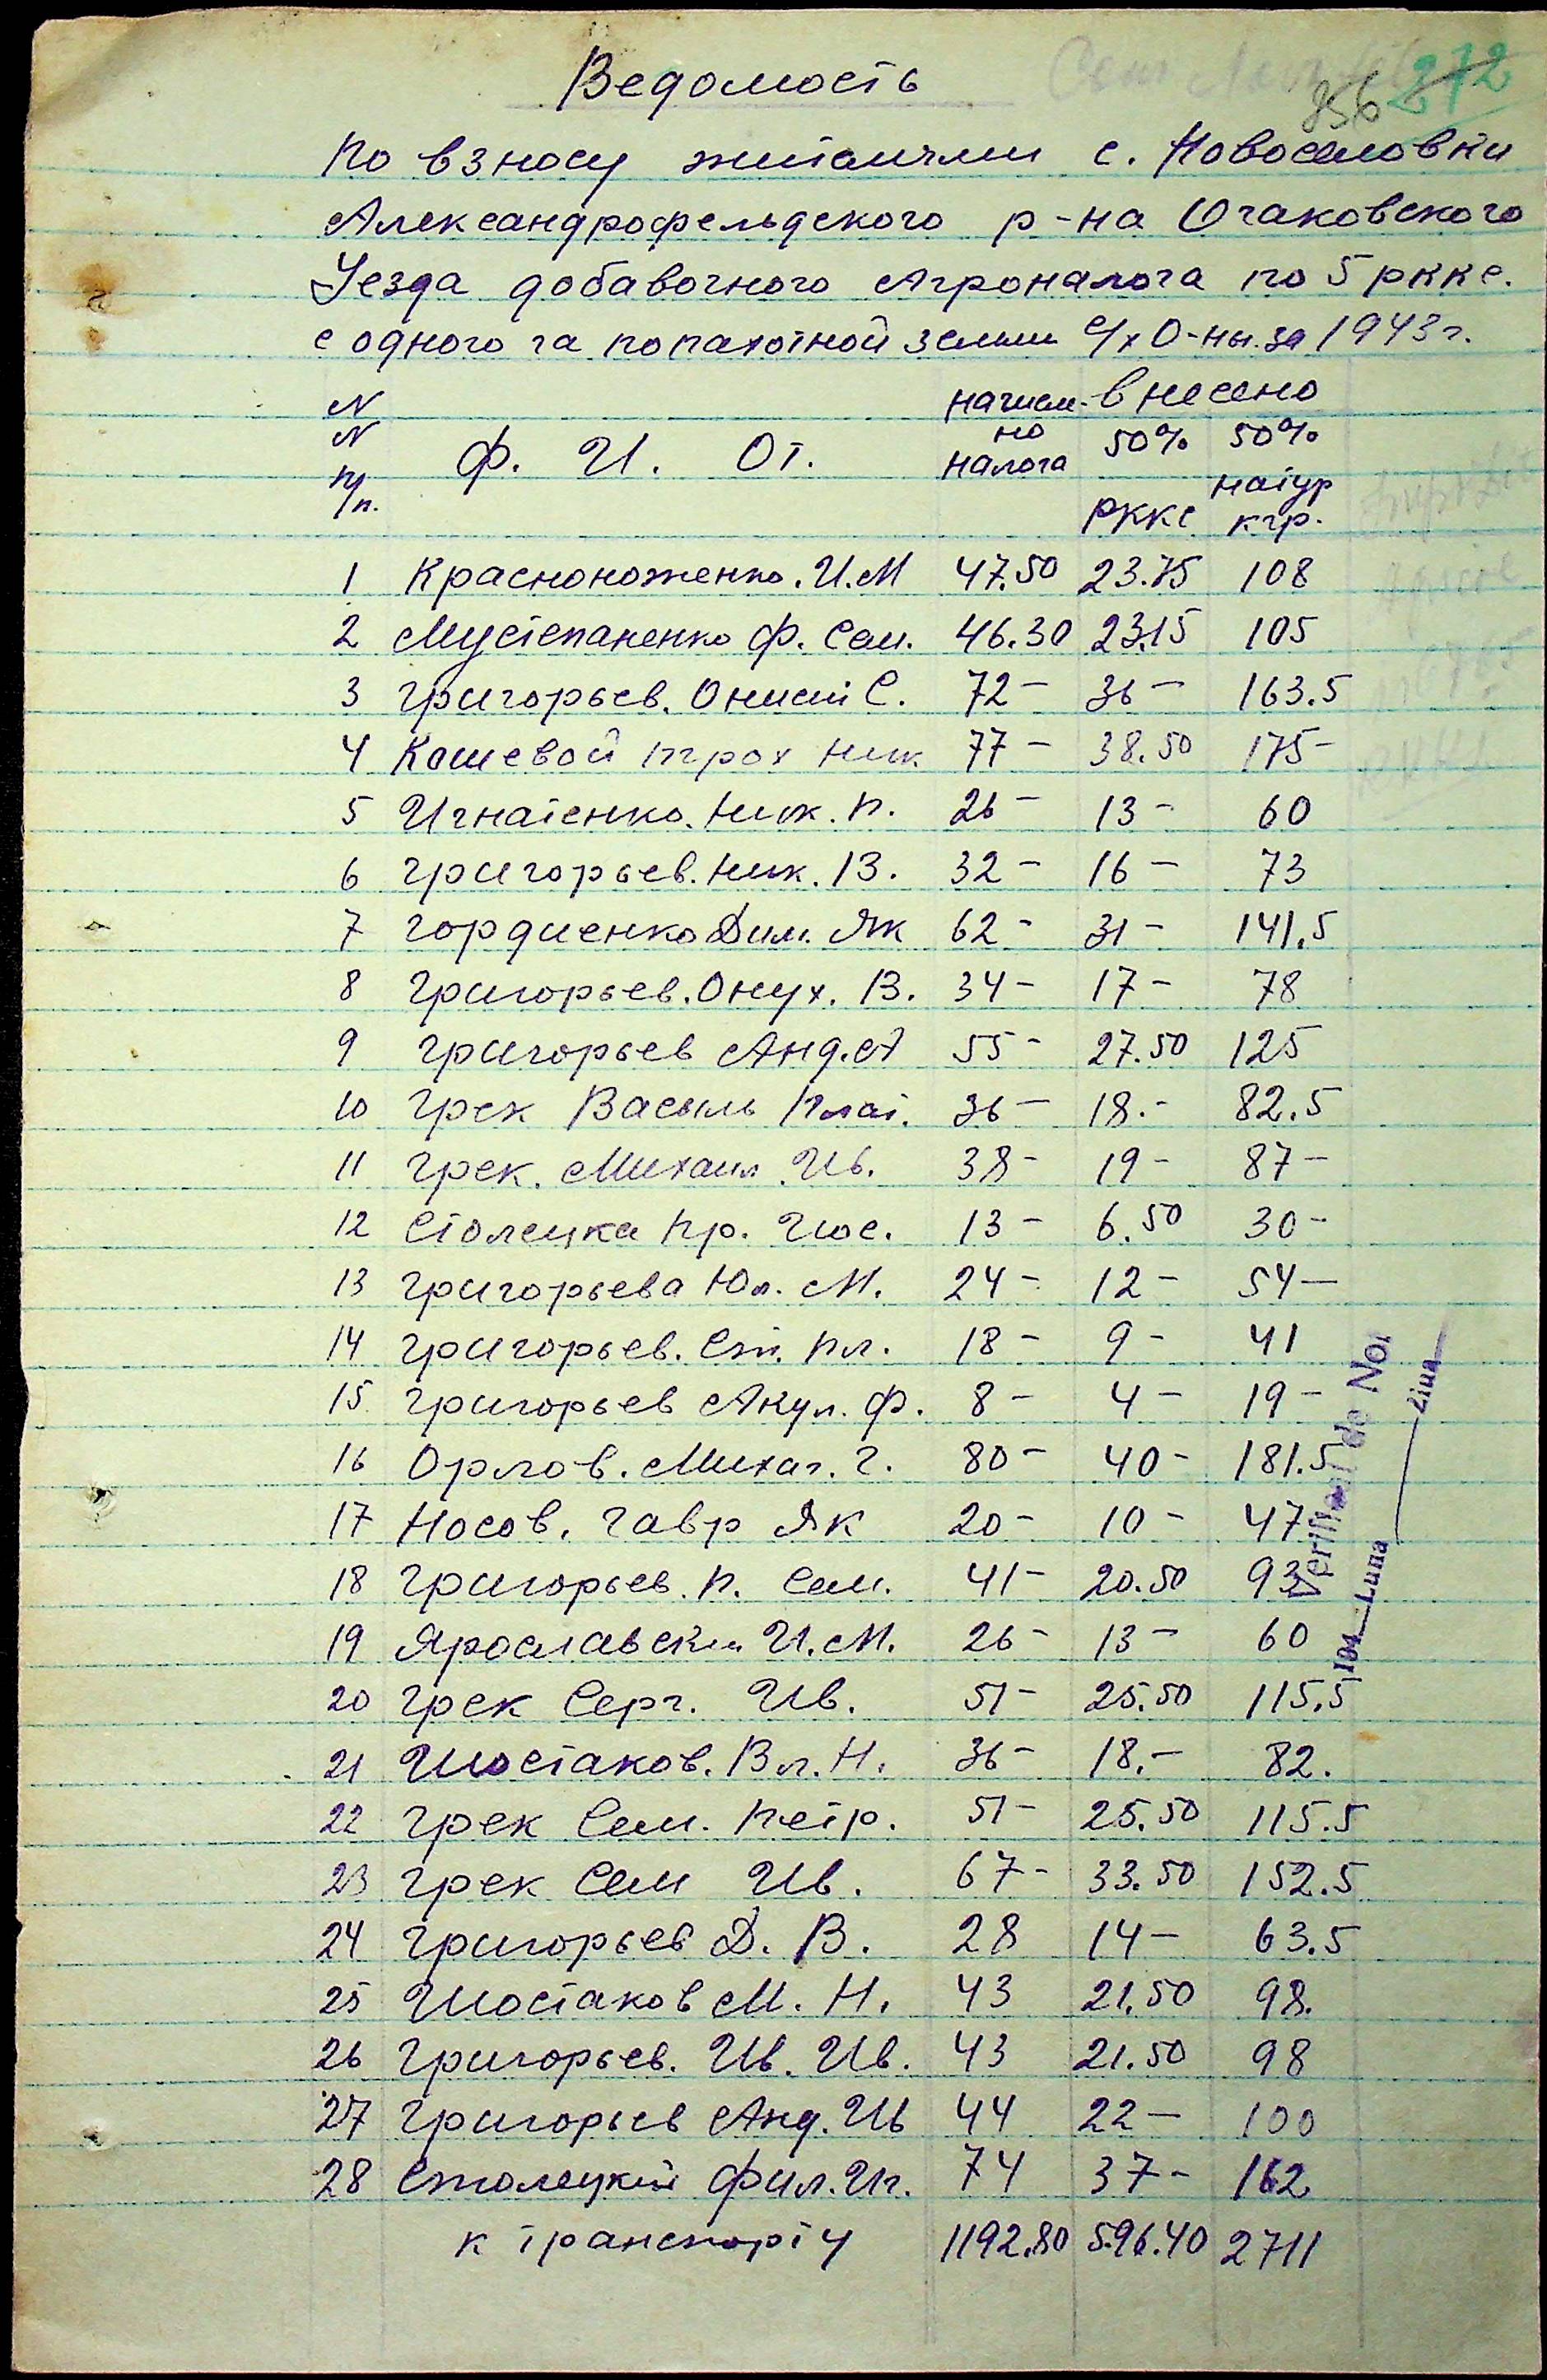 Ведомость
856 272
по взносу жителями с. Новоселовки
Александрофельдского р-на Очаковского
Уезда добавочного Агроналога по 5 ркке.
с одного га попахотной земли с/х О-ны. за 1943 г.
N N п/п. Ф. И. От. начисл-но налога внесено 50% ркке 50% натур кгр.
1 Красноноженко. И.М 47.50 23.75 108
2 Мустепаненко Ф. Сем. 46.30 23.15 105
3 Григорьев. Онисий С. 72- 36- 163.5
4 Кошевой Трох Ник 77- 38.50 175-
5 Игнатенко. Ник. П. 26- 13- 60
6 Григорьев. Ник. В. 32- 16- 73
7 Гордиенко Дим. Як 62- 31- 141.5
8 Григорьев. Онух. В. 34- 17- 78
9 Григорьев Анд. А 55- 27.50 125
10 Грек Василь Плат. 36- 18.- 82.5
11 Грек. Михаил. Ив. 38- 19- 87-
12 Столецка Пр. Иос. 13- 6.50 30-
13 Григорьева Юл. М. 24- 12- 54-
14 Григорьев. Ст. Пл. 18- 9- 41
15 Григорьев Акул. Ф. 8- 4- 19-
16 Орлов. Михаг. Г. 80- 40- 181.5
17 Носов. Гавр Як 20- 10- 47
18 Григорьев. П. Сем. 41- 20.50 93
19 Ярославский И. М. 26- 13- 60
20 Грек Серг. Ив. 51- 25.50 115.5
21 Шостаков. Вл. Н. 36- 18.- 82.
22 Грек Сем. Петр. 51- 25.50 115.5
23 Грек Сем Ив. 67- 33.50 152.5
24 Григорьев Д. В. 28 14- 63.5
25 Шостаков М. Н. 43 21.50 98.
26 Григорьев. Ив. Ив. 43 21.50 98
27 Григорьев Анд. Ив 44 22- 100
28 Столецкий Фил. Иг. 74 37- 162
к транспорту 1192.80 596.40 2711
Verificat de Noi
194 Luna Ziua